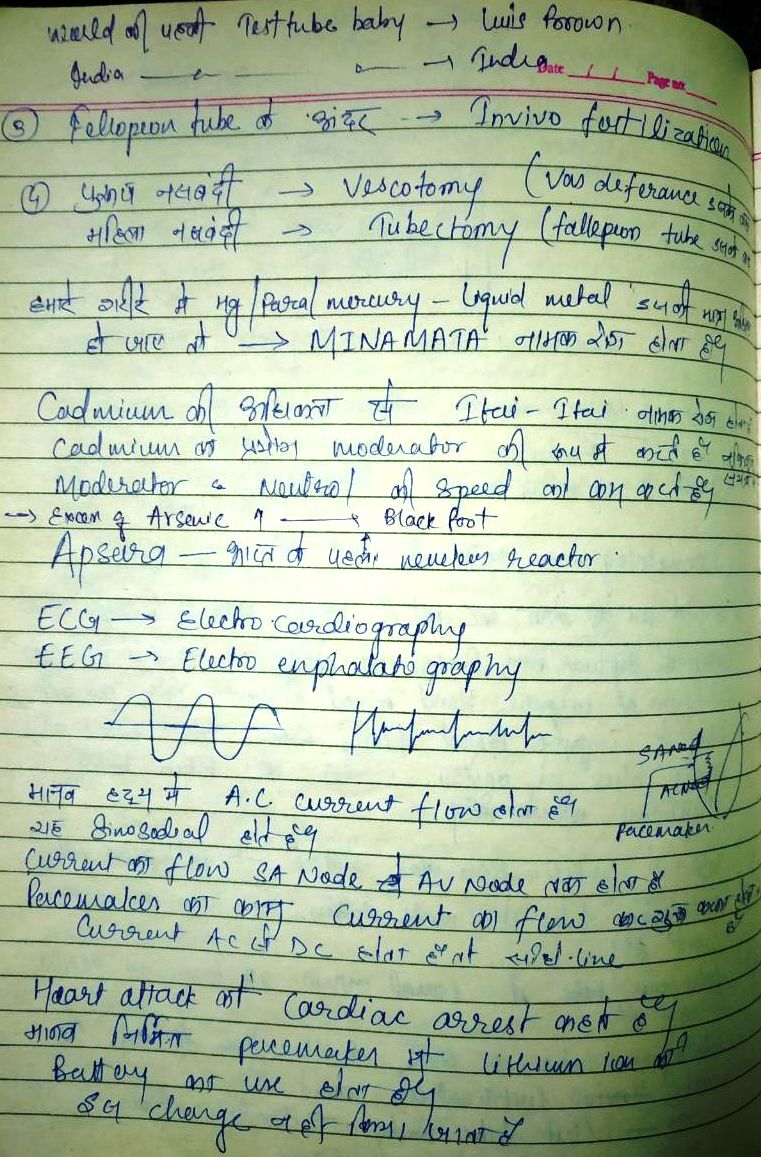 World की पहली Testtube baby → Luis Brown
India → India
Date / / Page no.
③ Fellopeon tube के अंदर → Invivo fortilization
④ पुरुष नसबंदी → Vescotomy (Vas deferance इसमें
महिला नसबंदी → Tubectomy (fallepeon tube इसमें
हमारे शरीर में Hg/Para/mercury - Liquid metal इसकी मात्रा
हो जाए तो → MINAMATA नामक रोग होता है।
Cadmium की अधिकता से Itai-Itai नामक रोग होता
Cadmium का प्रयोग moderator की रूप में करते है
Moderator की speed को कम करते है।
→ Arsenic ↑ → Black foot
Apsara — भारत के पहला neucleus reactor.
ECG → Electro cardiography
EEG → Electro enphalato graphy
SA Node
Pacemaker
मानव हृदय में A.C. current flow होता है।
यह Sinosodial होते है।
Current का flow SA Node से AV Node तक होता है
Pacemaker का काम Current का flow करना
Current AC से DC होता है तो सीधी line
Heart attack को Cardiac arrest कहते है।
मानव निर्मित pacemaker में Lithium Ion की
Battery का use होता है।
इसे change नही किया जाता है